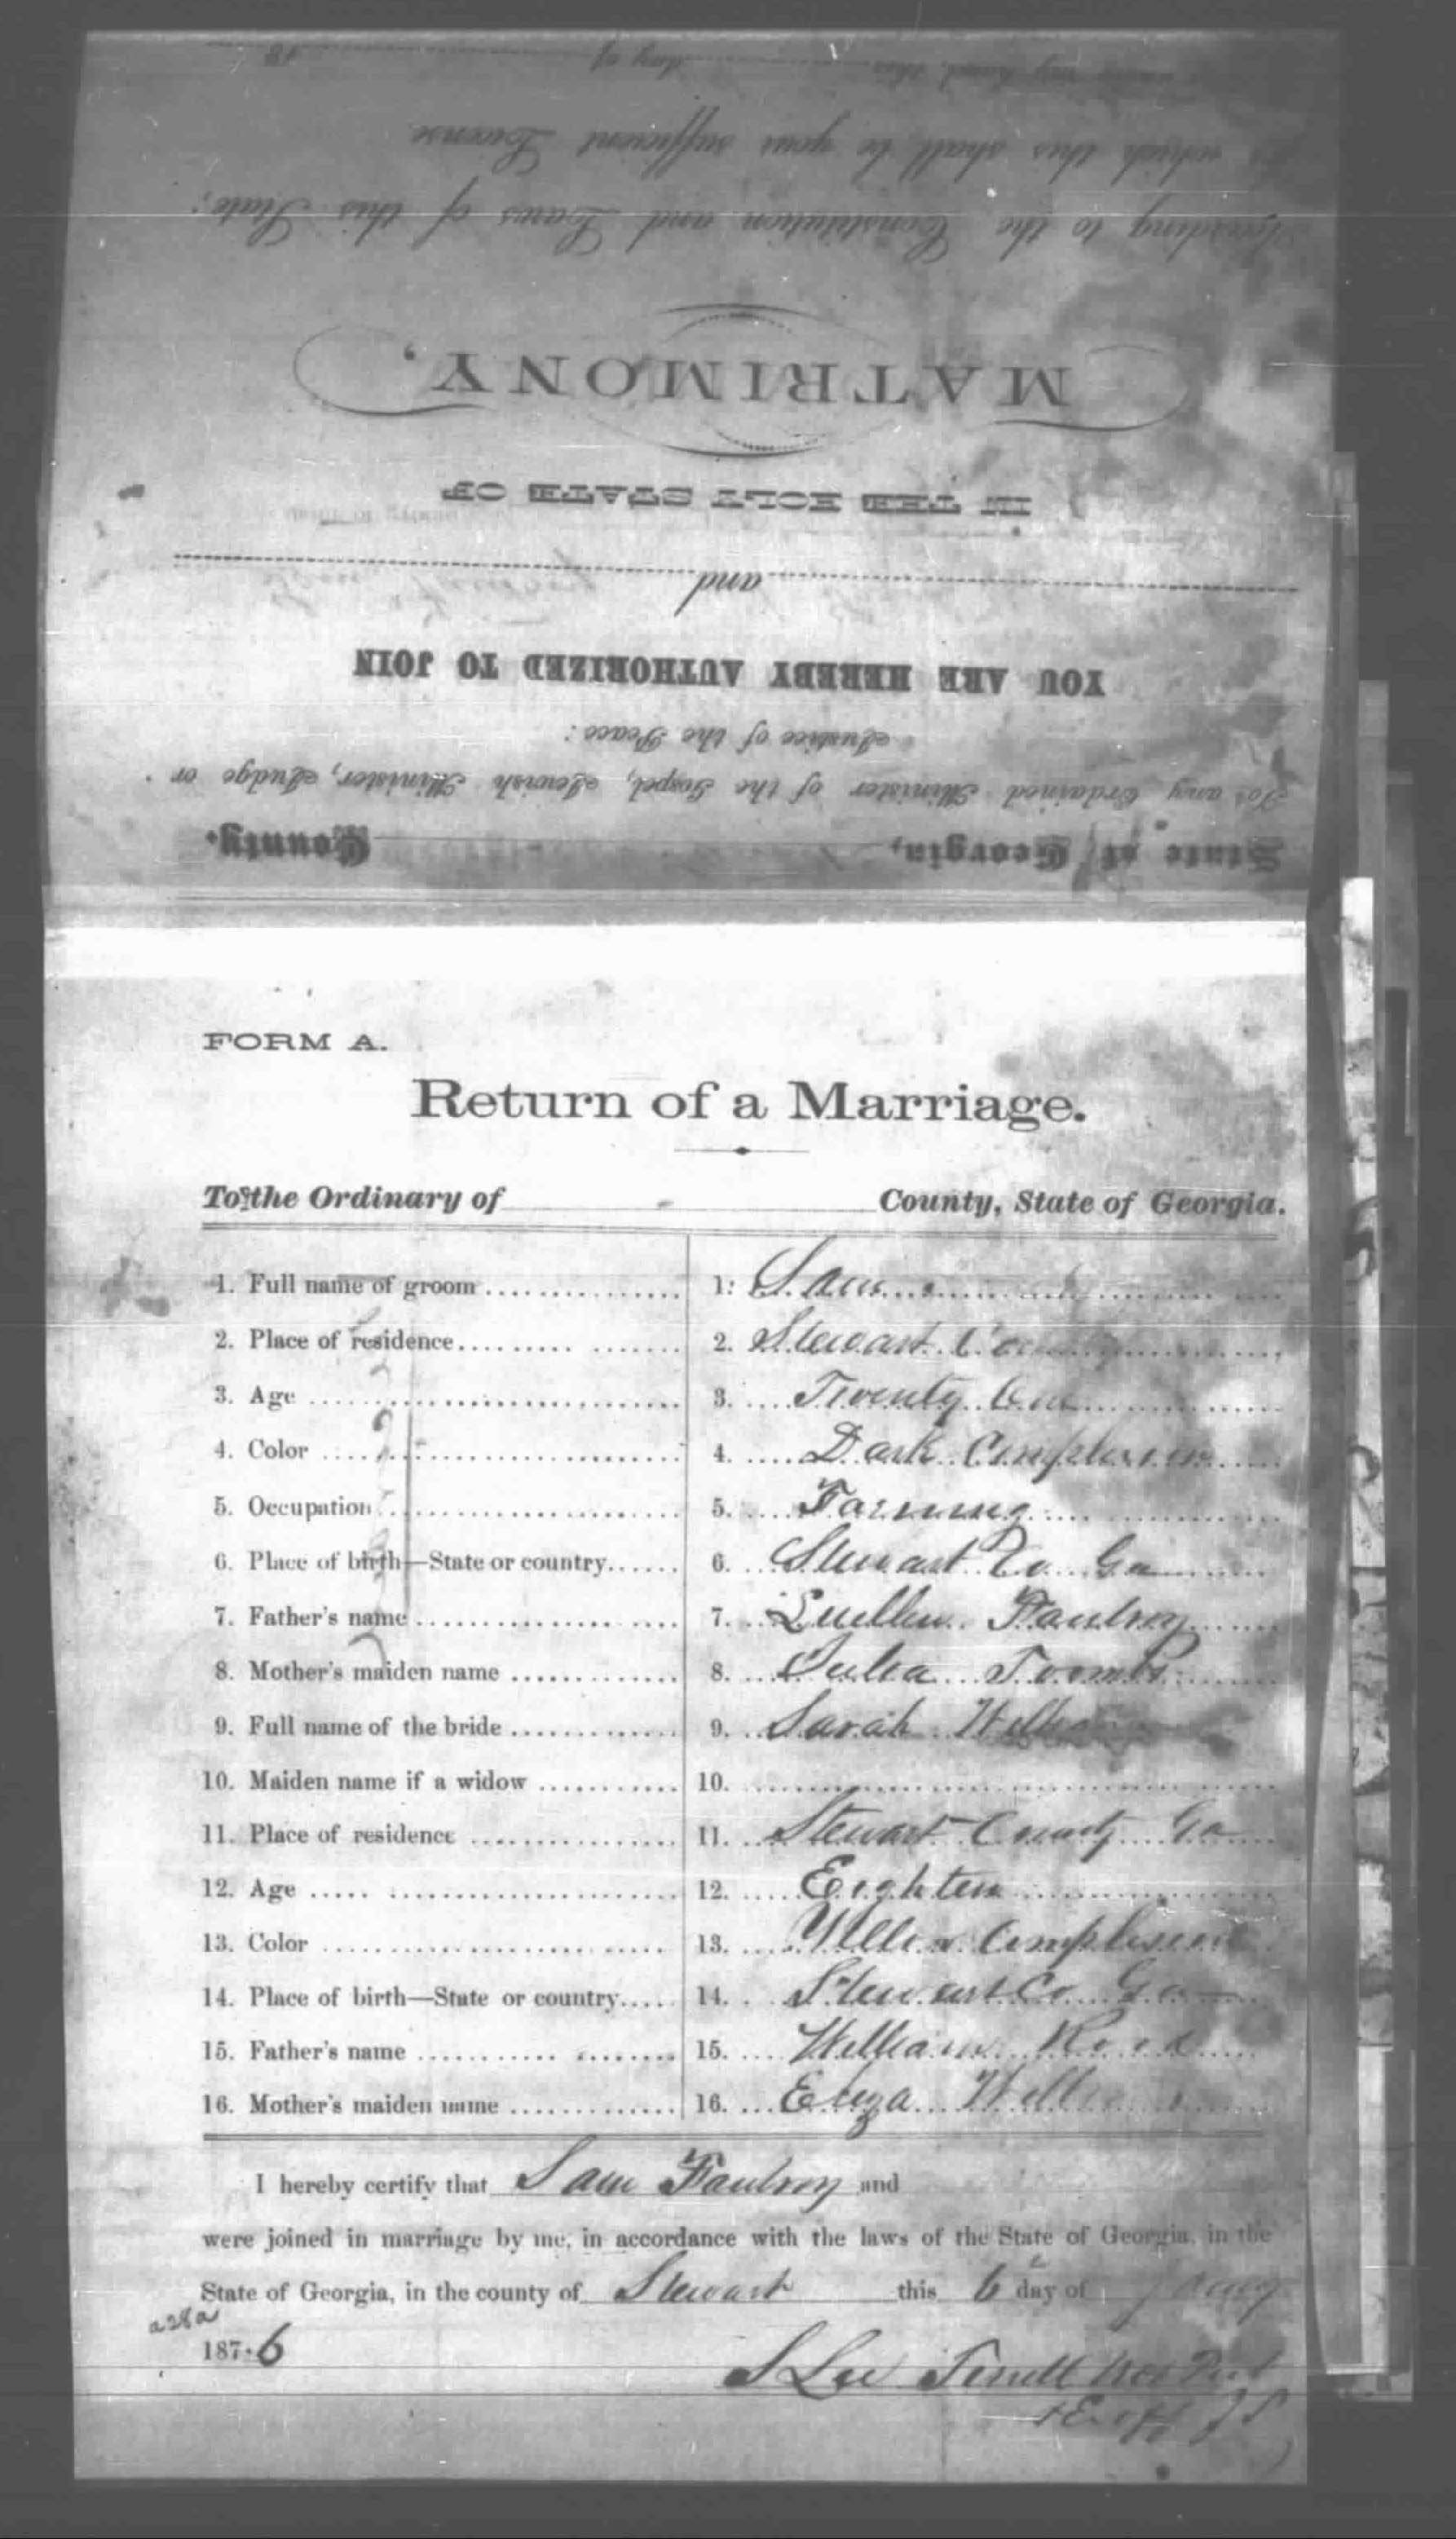 under my hand, this day of 18
for which this shall be your sufficient License
According to the Constitution and Laws of this State;
MATRIMONY,
IN THE HOLY STATE OF
and
YOU ARE HEREBY AUTHORIZED TO JOIN
Justice of the Peace:
To any Ordained Minister of the Gospel, Jewish Minister, Judge or
State of Georgia, County.
FORM A.
Return of a Marriage.
To the Ordinary of County, State of Georgia.
1. Full name of groom 1. Sam
2. Place of residence 2. Stewart County
3. Age 3. Twenty One
4. Color 4. Dark Complexion
5. Occupation 5. Farming
6. Place of birth—State or country 6. Stewart Co Ga
7. Father's name 7. Luellen Fauntroy
8. Mother's maiden name 8. Julia Toombs
9. Full name of the bride 9. Sarah
10. Maiden name if a widow 10.
11. Place of residence 11. Stewart County Ga
12. Age 12. Eighten
13. Color 13. Yellow Complexion
14. Place of birth—State or country 14. Stewart Co Ga
15. Father's name 15. William
16. Mother's maiden name 16. Eliza
I hereby certify that Sam Fauntroy and
were joined in marriage by me, in accordance with the laws of the State of Georgia, in the
State of Georgia, in the county of Stewart this 6 day of
a28a
1876
S Lee Terrell